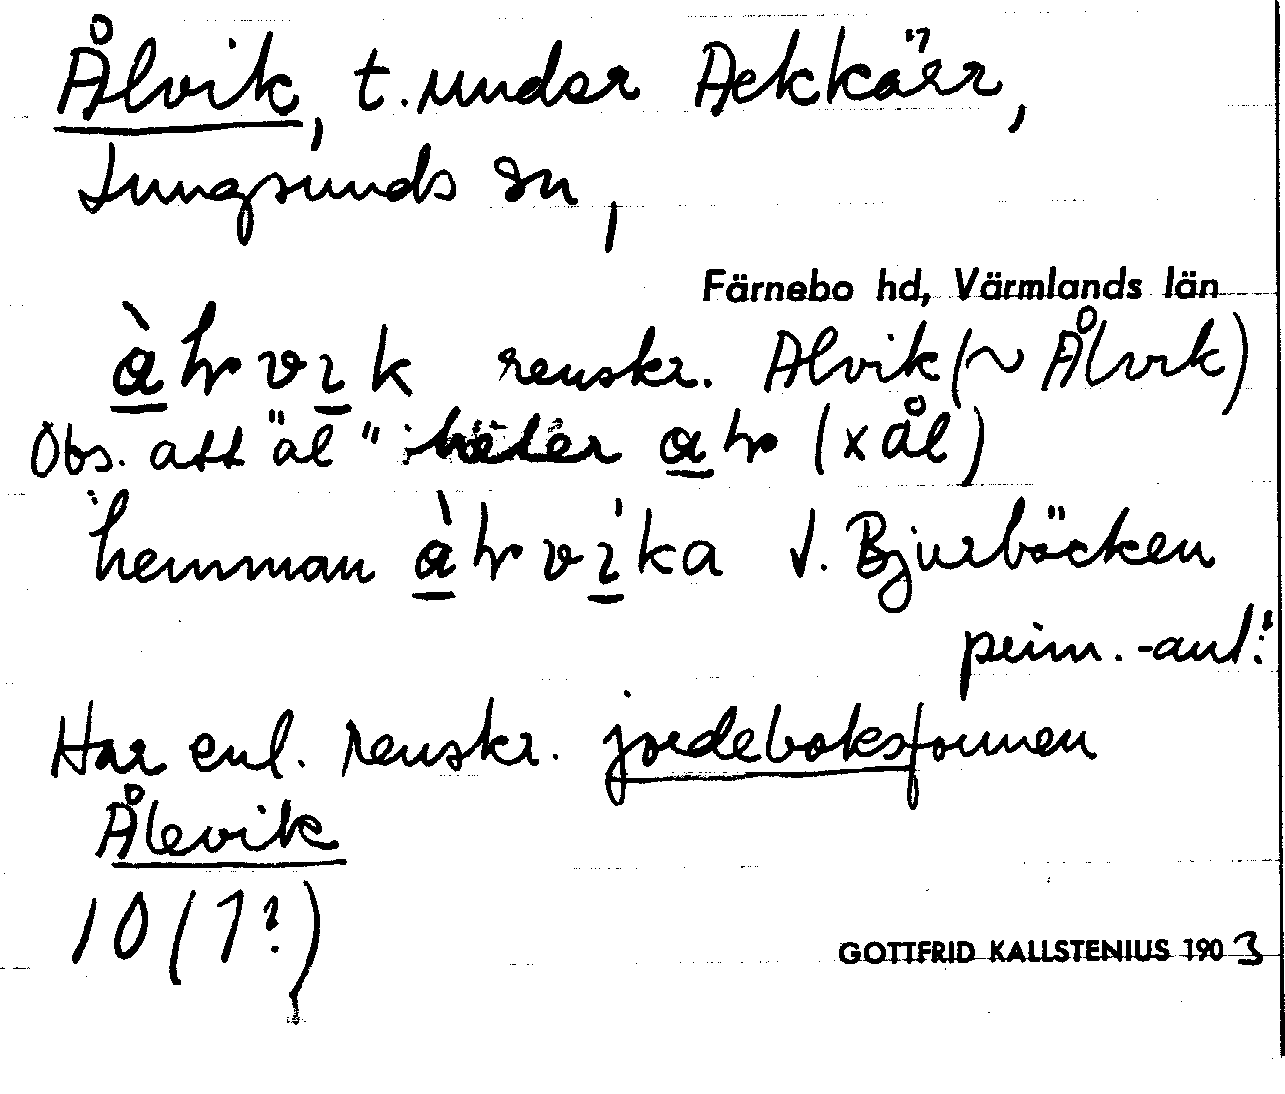 Ålvik, t. under Ackkärr,
Lungsunds sn,
Färnebo hd, Värmlands län
renskr. Alvik (~ Ålvik)
Obs. att "al" heter (x ål)
hemman v. Bjurbäcken
prim. -anl.
Har enl. renskr. jordeboksformen
Ålevik
10 (1?)
GOTTFRID KALLSTENIUS 1903